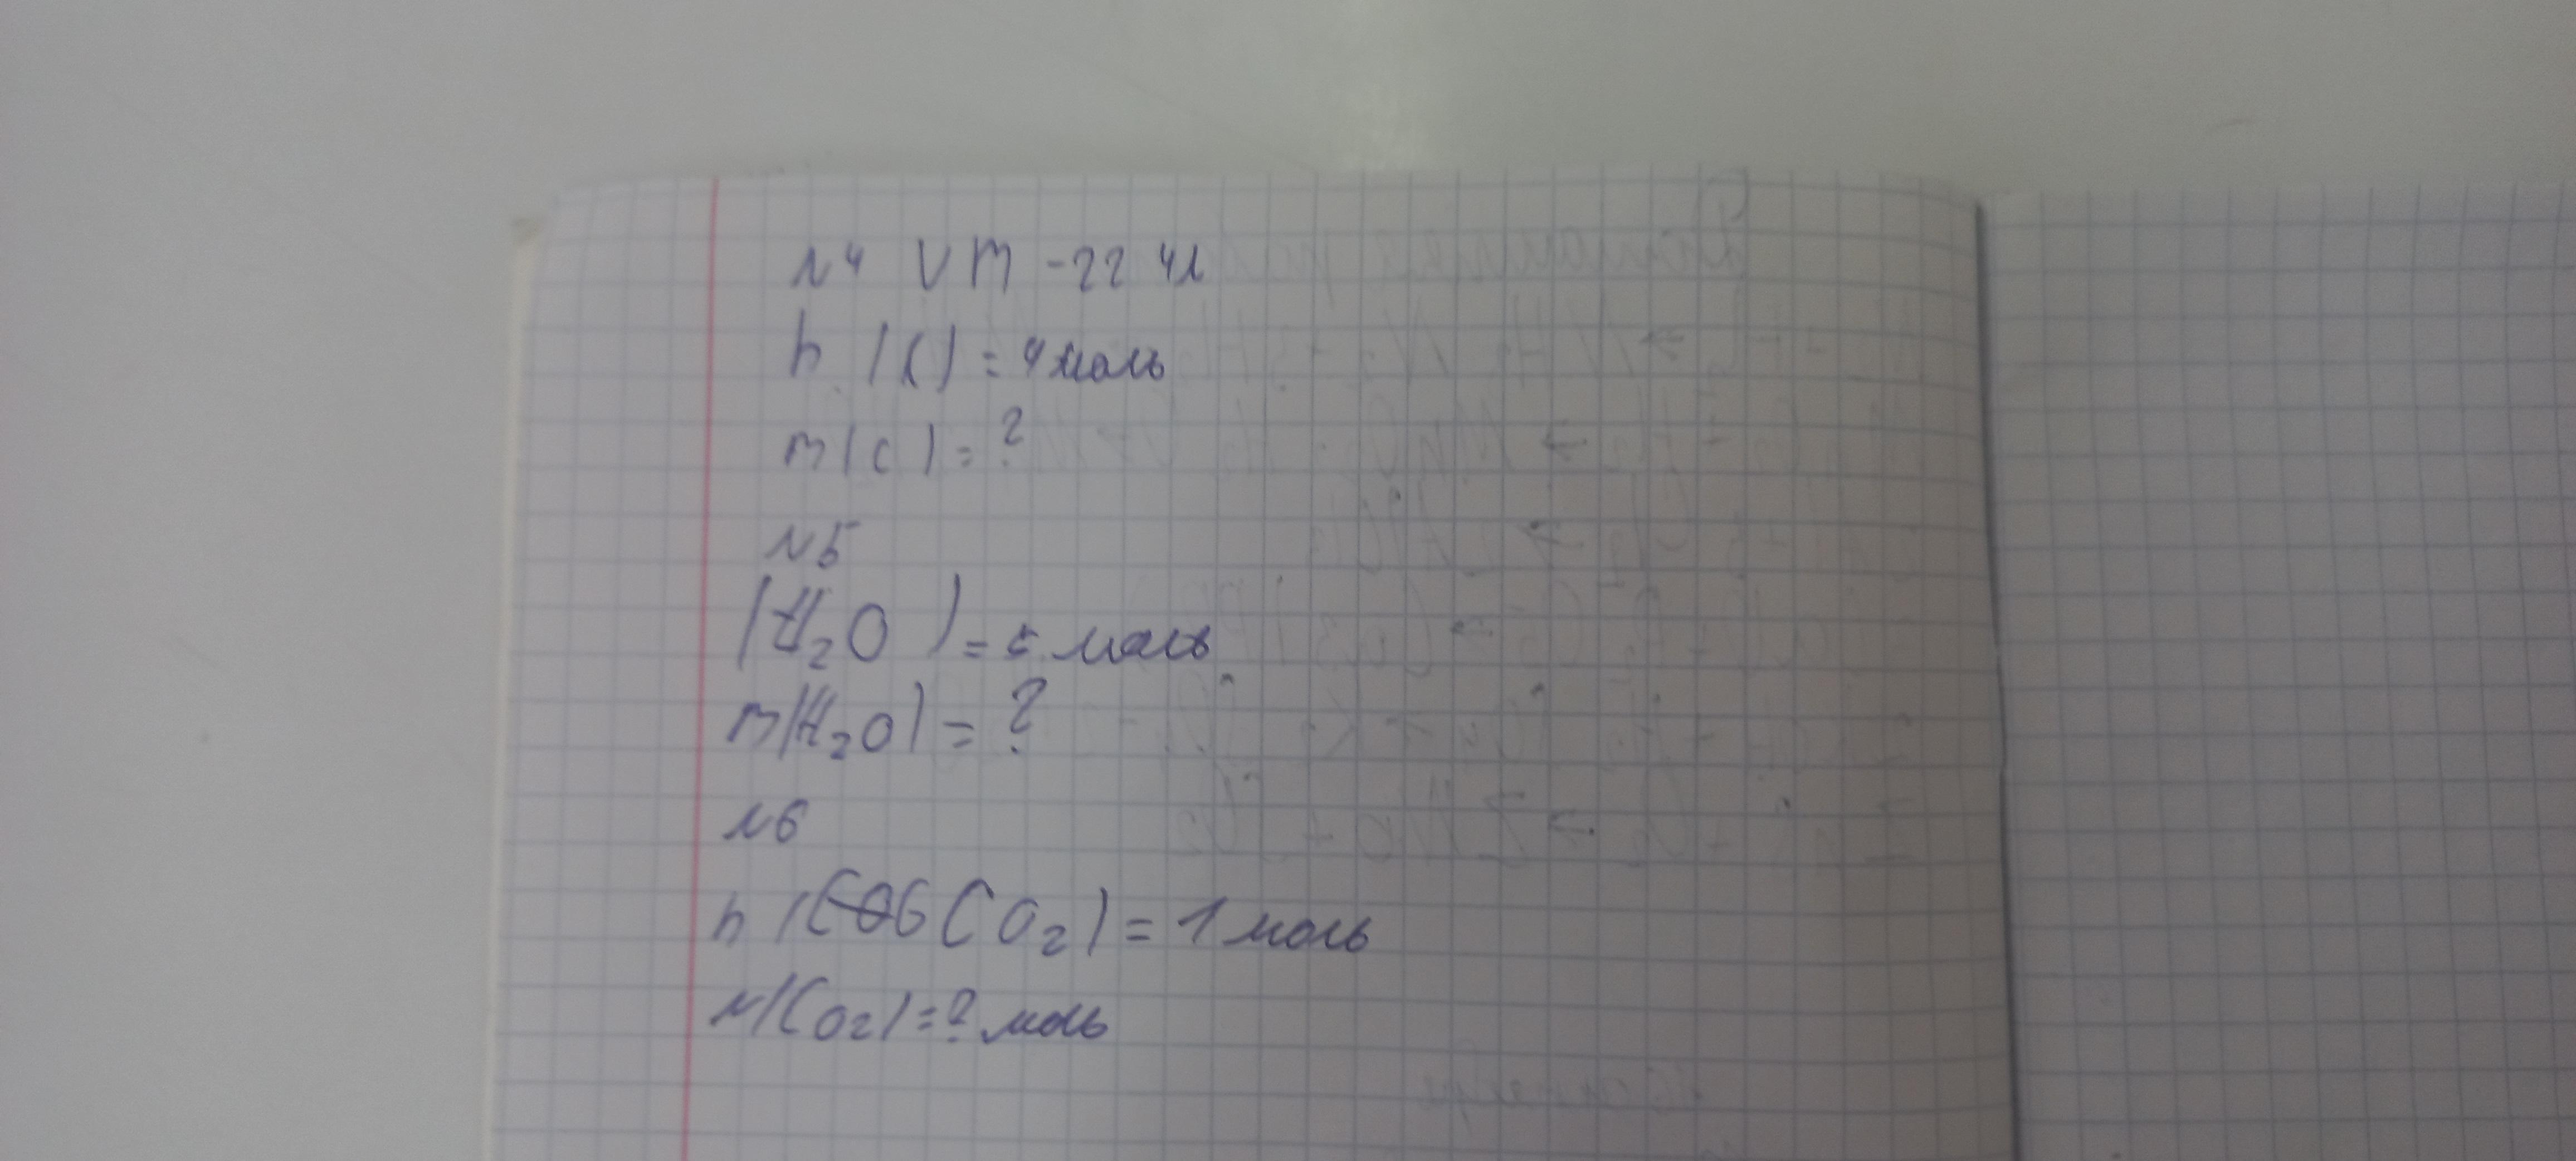 N4 VM -22 4л
n (C) = 4 моль
m(C) = ?
N5
(H₂O) = 5 моль
m(H₂O) = ?
N6
n (CO₂) = 1 моль
N(CO₂) = ? моль